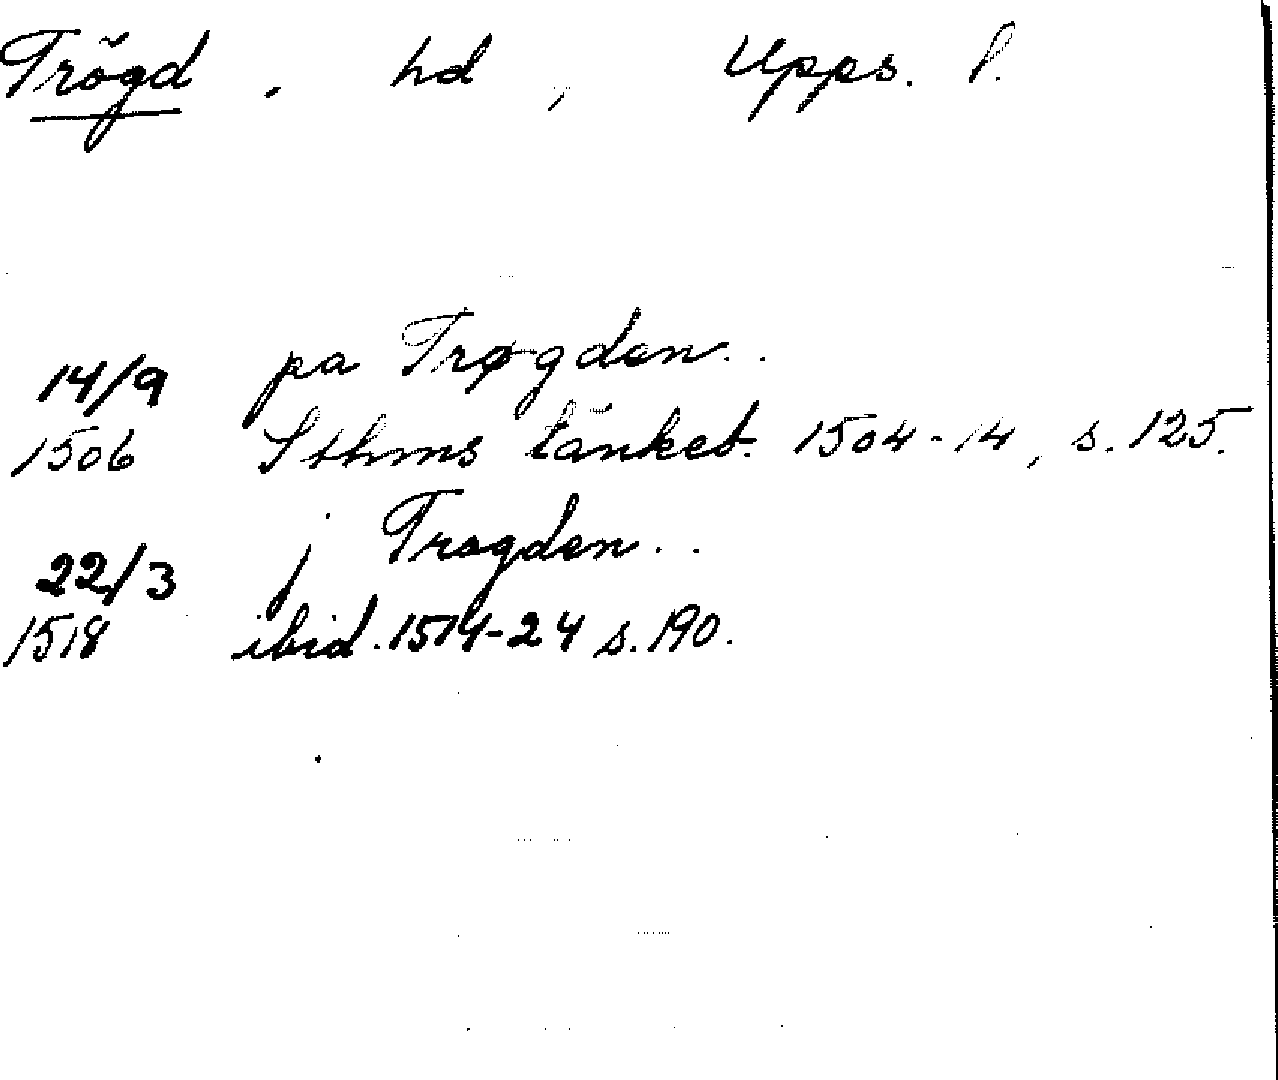 Trögd, hd, Upps. l.
14/9 pa Trøgden..
1506 Sthms tänkeb. 1504-14, s. 125.
22/3 j Trogden..
1518 ibid. 1514-24 s. 190.